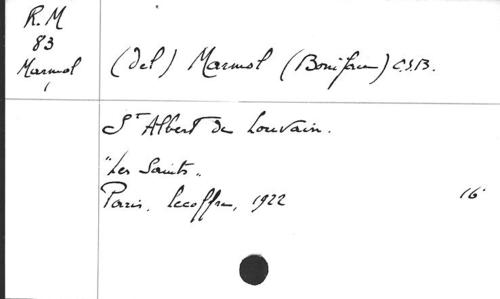 R.M
83
Marmol
(Del) Marmol (Boniface) C.S.B.
St Albert de Louvain.
"Les Saints"
Paris. Lecoffre, 1922 16°